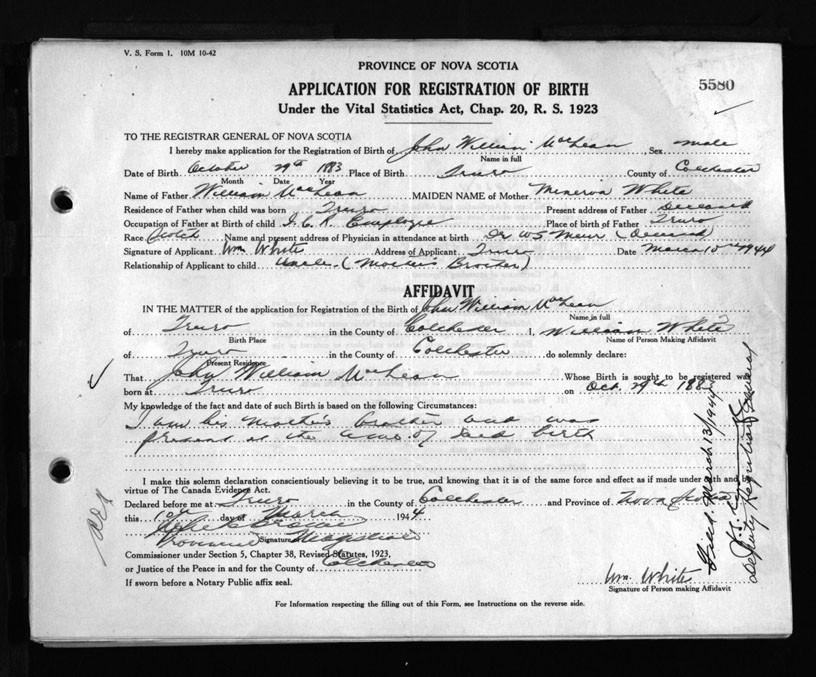 V. S. Form 1. 10M 10-42
PROVINCE OF NOVA SCOTIA
5580
APPLICATION FOR REGISTRATION OF BIRTH
Under the Vital Statistics Act, Chap. 20, R. S. 1923
TO THE REGISTRAR GENERAL OF NOVA SCOTIA
I hereby make application for the Registration of Birth of John William MacLean, Sex male
Name in full
Date of Birth October 29th 1883 Place of Birth Truro County of Colchester
Month Date Year
Name of Father William MacLean MAIDEN NAME of Mother Minerva White
Residence of Father when child was born Truro Present address of Father Deceased
Occupation of Father at Birth of child I.C.R. Employee Place of birth of Father Truro
Race Scotch Name and present address of Physician in attendance at birth Dr W S Muir (Deceased)
Signature of Applicant Wm White Address of Applicant Truro Date March 10th 1944
Relationship of Applicant to child Uncle. (Mother's Brother)
AFFIDAVIT
IN THE MATTER of the application for Registration of the Birth of John William MacLean
Name in full
of Truro in the County of Colchester I, William White
Birth Place Name of Person Making Affidavit
of Truro in the County of Colchester do solemnly declare:
Present Residence
That John William MacLean Whose Birth is sought to be registered was
born at Truro on Oct. 29th 1883
My knowledge of the fact and date of such Birth is based on the following Circumstances:
I am his Mother's brother and was
present at the time of said birth
I make this solemn declaration conscientiously believing it to be true, and knowing that it is of the same force and effect as if made under oath and by
virtue of The Canada Evidence Act.
Declared before me at Truro in the County of Colchester and Province of Nova Scotia
this 10th day of March 1944
Signature Magistrate
Commissioner under Section 5, Chapter 38, Revised Statutes, 1923,
or Justice of the Peace in and for the County of Colchester
If sworn before a Notary Public affix seal.
Wm. White
Signature of Person making Affidavit
For Information respecting the filling out of this Form, see Instructions on the reverse side.
Filed March 13/1944
Deputy Registrar General